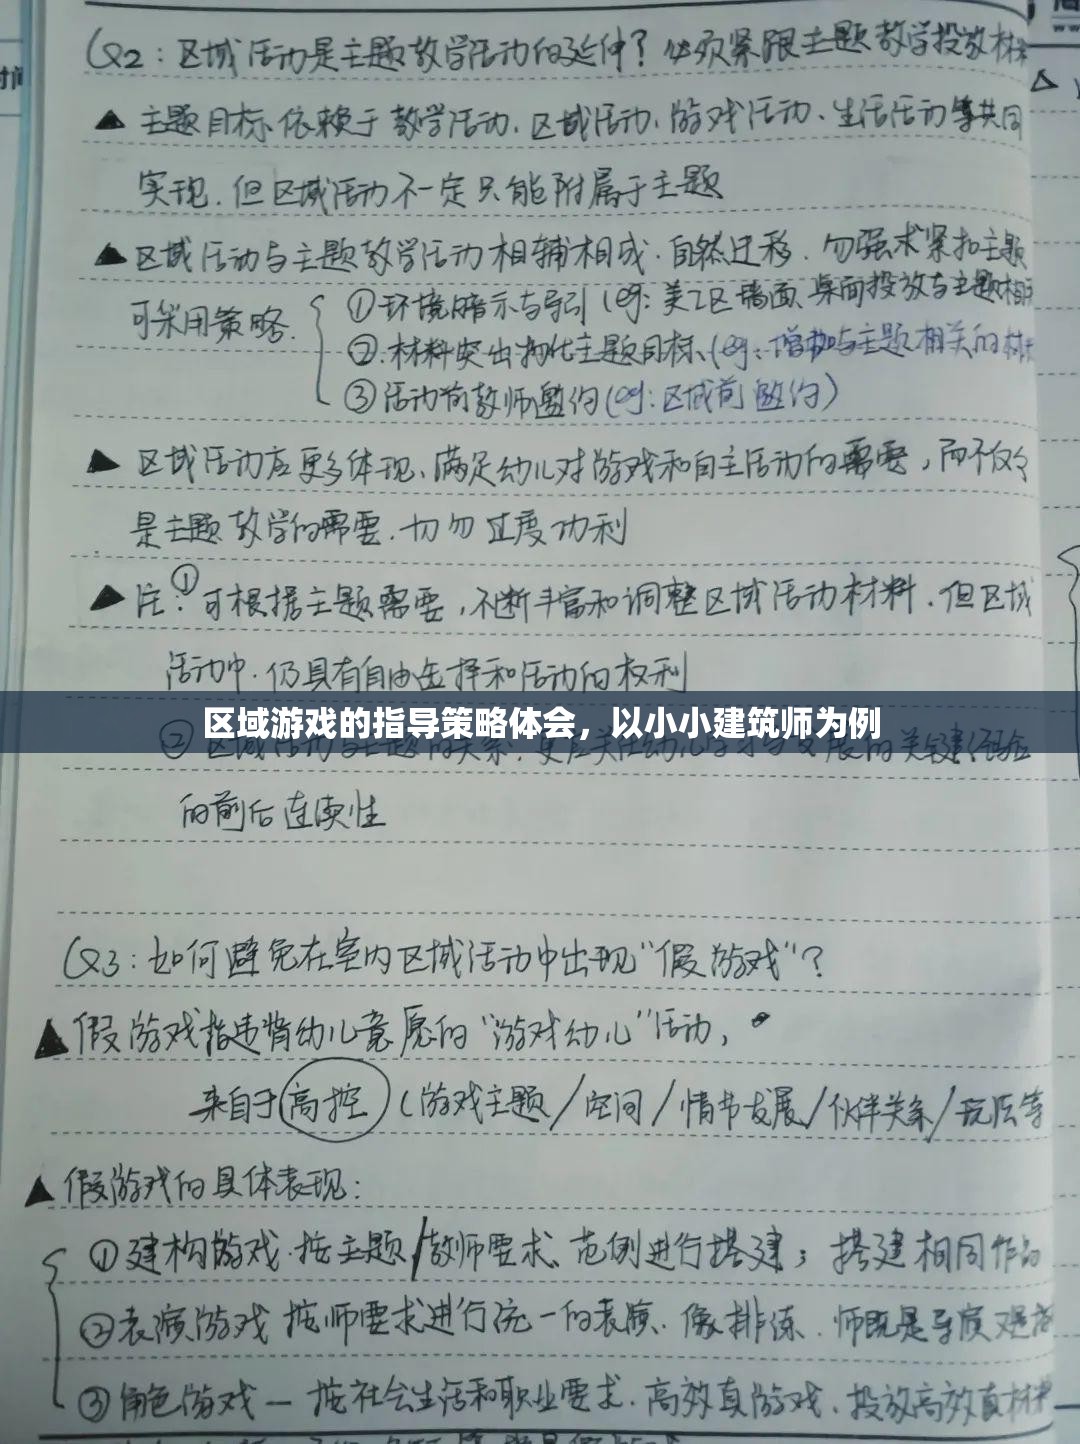 Q2：区域活动是主题教学活动的延伸？必须紧跟主题教学投放材
▲ 主题目标依赖于教学活动、区域活动、游戏活动、生活活动等共同
实现，但区域活动不一定只能附属于主题
▲ 区域活动与主题教学活动相辅相成，自然迁移，勿强求紧扣主题
可采用策略
①环境暗示与导引（eg：美工区墙面、桌面投放与主题相
②材料突出物化主题目标（eg：增加与主题相关的材
③活动前教师邀约（eg：区域前邀约）
▲ 区域活动应更多体现、满足幼儿对游戏和自主活动的需要，而不仅
是主题教学的需要，切勿过度功利
▲ 注：①可根据主题需要，不断丰富和调整区域活动材料，但区域
活动中，仍具有自由选择和活动的权利
区域游戏的指导策略体会，以小小建筑师为例
②区域活动与主题的关系，更应关注幼儿学习与发展的关键经验
的前后连续性
Q3：如何避免在室内区域活动中出现“假游戏”？
▲假游戏指违背幼儿意愿的“游戏幼儿”活动，
来自于高控（游戏主题/空间/情节发展/伙伴关系/玩法等
▲假游戏的具体表现：
①建构游戏，按主题/教师要求、范例进行搭建；搭建相同作品
②表演游戏 按师要求进行统一的表演，像排练，师既是导演又是
③角色游戏—按社会生活和职业要求，高效真游戏，投放高效真材